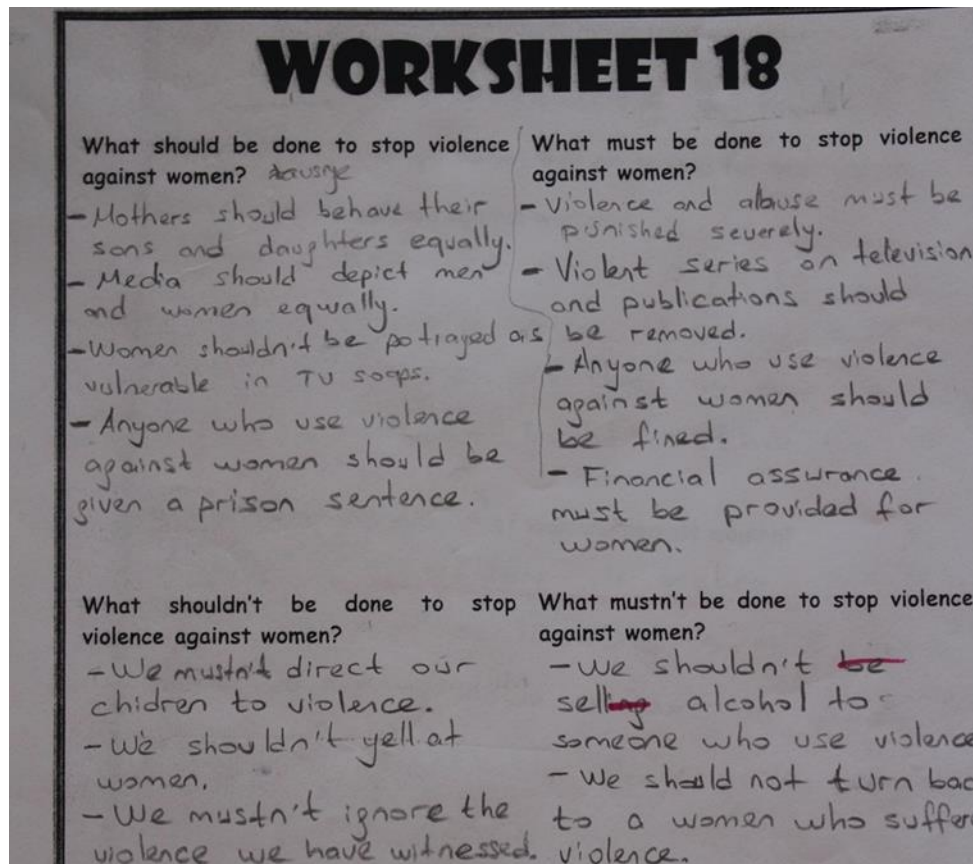 WORKSHEET 18
What should be done to stop violence
against women?
- Mothers should behave their
sons and daughters equally.
- Media should depict men
and women equally.
- Women shouldn't be potrayed as
vulnerable in TV soaps.
- Anyone who use violence
against women should be
given a prison sentence.
What must be done to stop violence
against women?
- Violence and abuse must be
punished severely.
- Violent series on television
and publications should
be removed.
- Anyone who use violence
against women should
be fined.
- Financial assurance
must be provided for
women.
What shouldn't be done to stop
violence against women?
- We mustn't direct our
chidren to violence.
- We shouldn't yell at
women.
- We mustn't ignore the
violence we have witnessed.
What mustn't be done to stop violence
against women?
- We shouldn't be
selling alcohol to
someone who use violence
- We should not turn bac
to a women who suffer
violence.